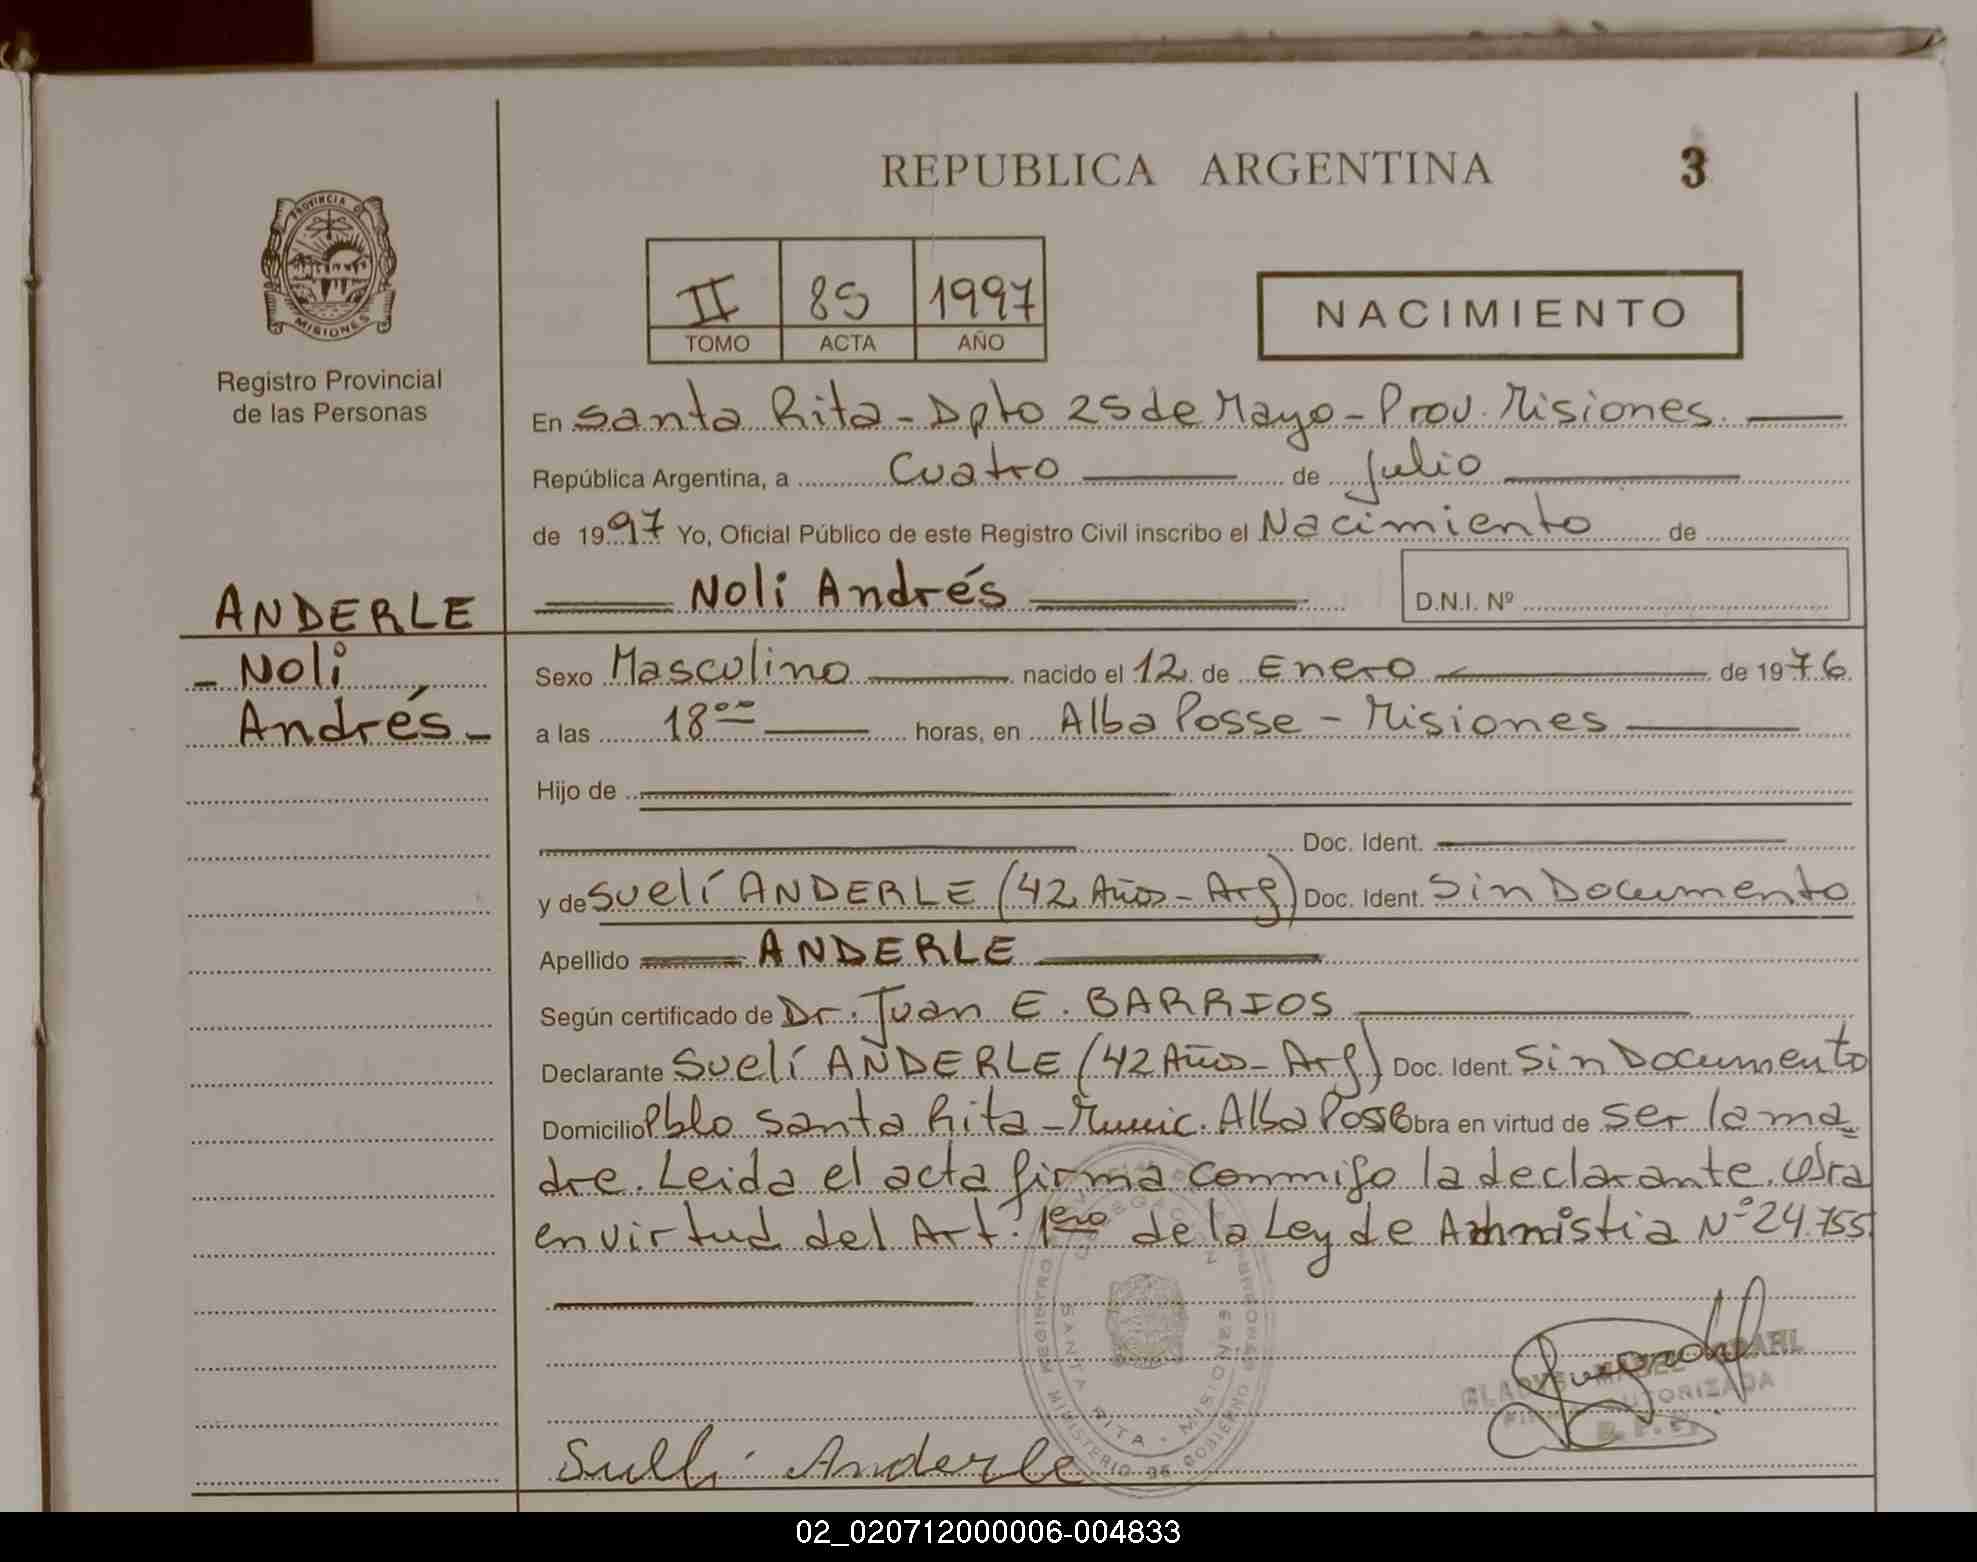 REPUBLICA ARGENTINA
3
PROVINCIA DE
MISIONES
Registro Provincial
de las Personas
II 85 1997
TOMO ACTA AÑO
NACIMIENTO
En Santa Rita - Dpto 25 de Mayo - Prov. Misiones.
República Argentina, a Cuatro de Julio
de 1997 Yo, Oficial Público de este Registro Civil inscribo el Nacimiento de
Noli Andrés
D.N.I. Nº
ANDERLE
- Noli
Andrés -
Sexo Masculino nacido el 12 de Enero de 1976
a las 18 ºº horas, en Alba Posse - Misiones
Hijo de
Doc. Ident.
y de Suelí ANDERLE (42 Años - Arg) Doc. Ident. Sin Documento
Apellido ANDERLE
Según certificado de Dr. Juan E. BARRIOS
Declarante Suelí ANDERLE (42 Años - Arg) Doc. Ident. Sin Documento
Domicilio Pblo Santa Rita - Munic. Alba Posse Obra en virtud de ser la ma=
dre. Leida el acta firma conmigo la declarante. Obra
en virtud del Art. 1ero de la Ley de Amnistia Nº 24.755
REGISTRO
SANTA RITA - MISIONES
MINISTERIO DE GOBIERNO
GLADYS MABEL
AUTORIZADA
Anderle
02_020712000006-004833